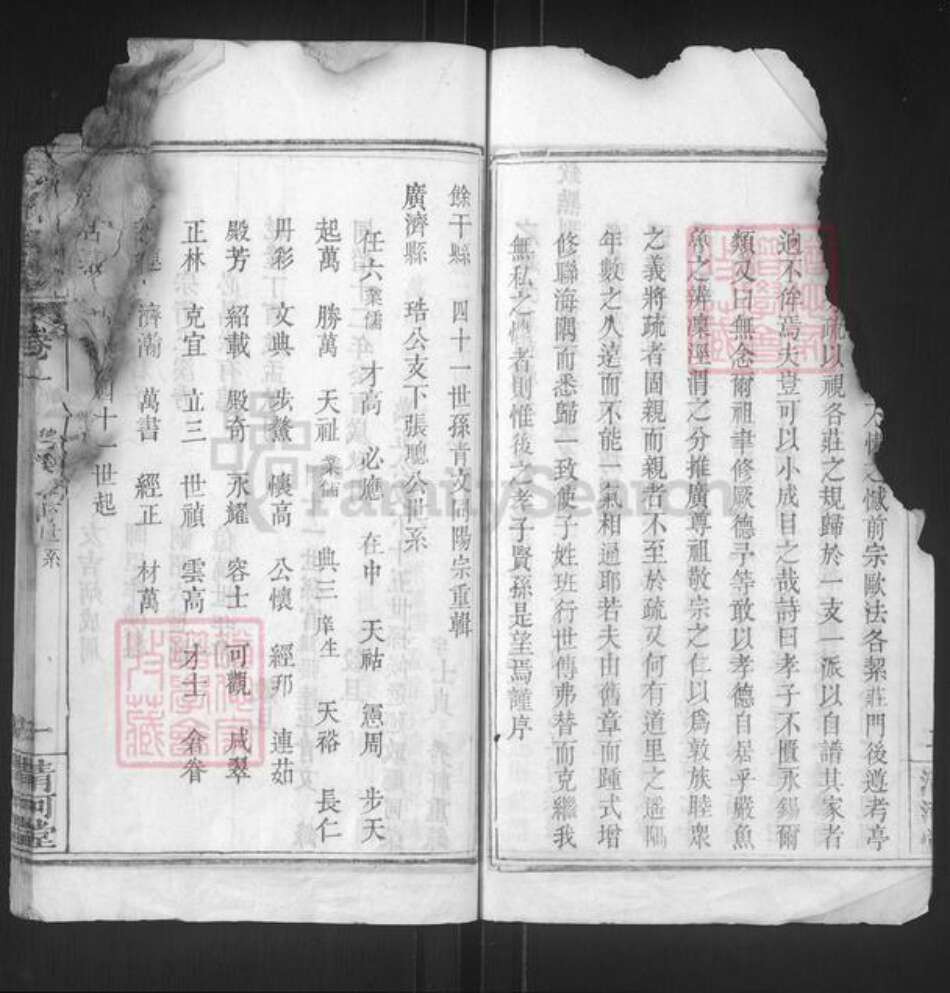 之憾前宗歐法各絜莊門後遵考亭
以視各莊之規歸於一支一派以自譜其家者
迥不侔焉夫豈可以小成目之哉詩曰孝子不匱永錫爾
類又曰無念爾祖聿修厥德予等敢以孝德自居乎嚴魚
魯之辨凜涇渭之分推廣尊祖敬宗之仁以爲敦族睦衆
之義將疏者固親而親者不至於疏又何有道里之遙隔
年數之久遠而不能一氣相通耶若夫由舊章而踵式增
修聯海隅而悉歸一致使子姓班行世傳弗替而克繼我
無私之憾者則惟後之孝子賢孫是望焉謹序
餘干縣 四十一世孫青文同陽宗重輯
廣濟縣 琣公支下張聰公世系
任六業儒 才高 必應 在中 天祜 憲周 步天
起萬 勝萬 天祉業儒 典三庠生 天裕 長仁
丹彩 文典 步鰲 懷高 公懷 經邦 連茹
殿芳 紹載 殿奇 永耀 容士 可觀 咸翠
正林 克宜 立三 世禎 雲高 才士 眷
萬書 經正 材萬
十一世起
卷
系
一
清河堂
FamilySearch